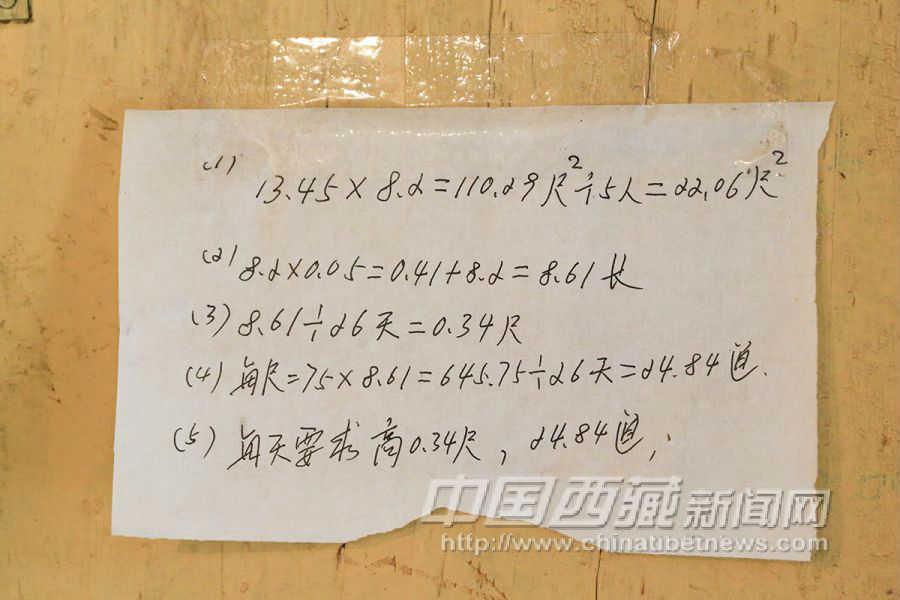 (1)
13.45×8.2=110.29尺²÷5人=22.06尺²
(2) 8.2×0.05=0.41+8.2=8.61长
(3) 8.61÷26天=0.34尺
(4) 每尺=75×8.61=645.75÷26天=24.84道.
(5) 每天要求高0.34尺, 24.84道;
中国西藏新闻网
http://www.chinatibetnews.com